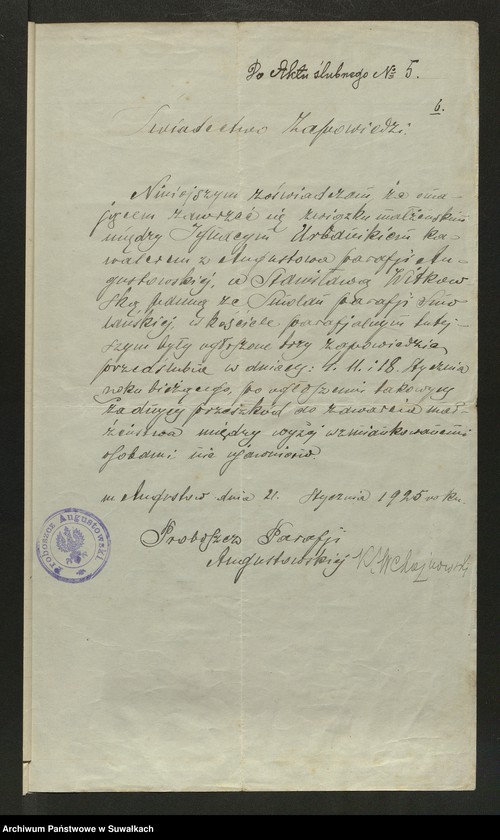 Do Aktu ślubnego № 5.
6.
Świadectwo Zapowiedzi.
Niniejszym zaświadczam, że ma-
jącem zawrzeć się związku małżeńskim
między Ignacym Urbanikiem ka-
walerem z Augustowa parafji Au-
gustowskiej, a Stanisławą Witkow-
ską panną ze Smolan parafji Smo-
lańskiej, w kościele parafjalnym tutej-
szym były ogłoszone trzy zapowiedzie
przedślubne w dniach: 4. 11. i 18. Stycznia
roku bieżącego, po ogłoszeniu takowych
żadnych przeszkód do zawarcia mał-
żeństwa między wyżej wzmiankowanemi
osobami nie ujawniono.
m. Augustów dnia 21. Stycznia 1925 roku.
Proboszcz Parafji
Augustowskiej
Proboszcz Augustowski
Archiwum Państwowe w Suwałkach